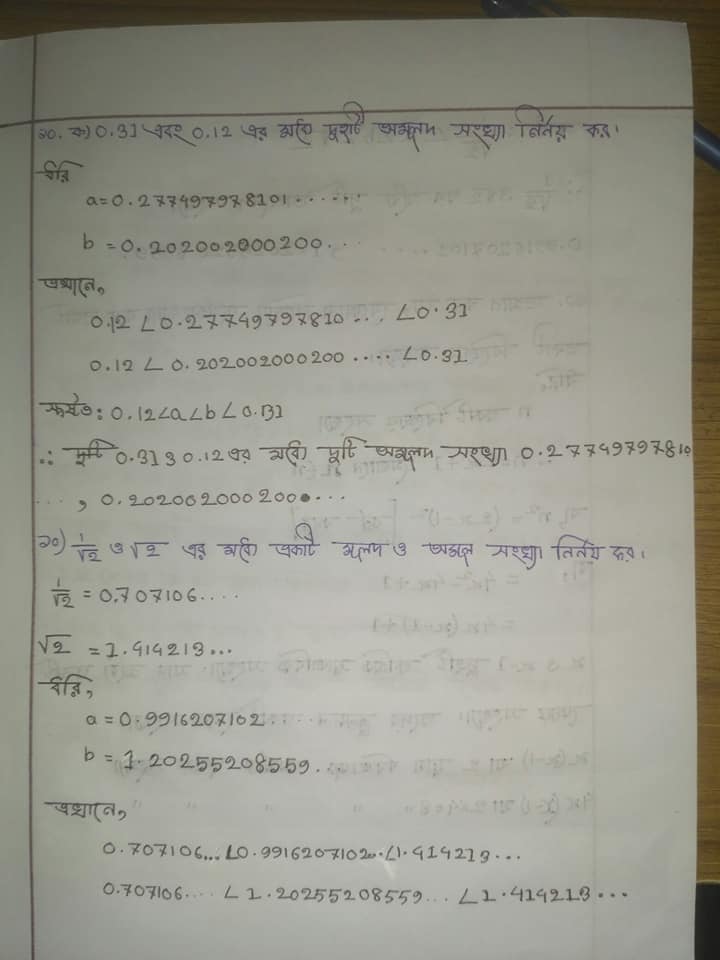 ১০. ক) 0.31 এবং 0.12 এর মধ্যে দুইটি অমূলদ সংখ্যা নির্ণয় কর।
ধরি
a = 0.277497978101......
b = 0.202002000200...
এখানে,
0.12 < 0.27749797810... < 0.31
0.12 < 0.202002000200.... < 0.31
0.12 < a < b < 0.31
∴ 0.31 ও 0.12 এর মধ্যে দুটি অমূলদ সংখ্যা 0.27749797810
..., 0.202002000200....
১০) 1/√2 ও √2 এর মধ্যে একটি মূলদ ও অমূলদ সংখ্যা নির্ণয় কর।
1/√2 = 0.707106....
√2 = 1.414213...
ধরি,
a = 0.9916207102.....
b = 1.20255208559...
এখানে,
0.707106... < 0.9916207102.. < 1.414213...
0.707106.... < 1.20255208559... < 1.414213...